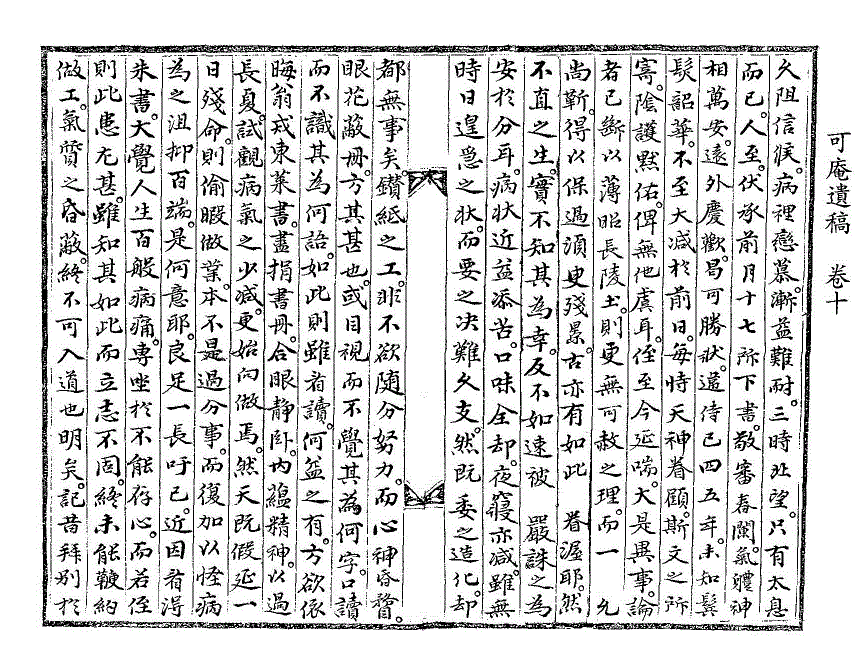 可庵遺稿 卷十
久阻信候。病裡戀慕。漸益難耐。三時北望。只有太息
而已。人至。伏承前月十七所下書。敬審春闌。氣體神
相萬安。遠外慶歡。曷可勝狀。違侍已四五年。未知鬂
髮韶華。不至大减於前日。每恃天神眷顧。斯文之所
寄。陰護默佑。俾無他虞耳。侄至今延喘。大是異事。論
者已斷以薄昭長陵土。則更無可赦之理。而一 允
尚靳。得以保過湏臾殘景。古亦有如此 眷渥耶。然
不直之生。實不知其為幸。反不如速被 嚴誅之為
安於分耳。病狀近益添苦。口味全却。夜寢亦减。雖無
時日遑急之状。而要之决難久支。然既委之造化。却
都無事矣。鑚紙之工。非不欲随分努力。而心神昏瞀。
眼花蔽冊。方其甚也。或目視而不覺其為何字。口讀
而不識其為何語。如此則雖看讀。何益之有。方欲依
晦翁戒東萊書。盡捐書冊。合眼静卧。内蘊精神。以過
長夏。試觀病氣之少减。更始向做焉。然天既假延一
日殘命。則偷暇做業。本不是過分事。而復加以恠病
為之沮抑百端。是何意耶。良足一長吁已。近因看得
朱書。大覺人生百般病痛。專坐於不能存心。而若侄
則此患尤甚。雖知其如此而立志不固。終未能鞭約
做工。氣質之昏蔽。終不可入道也明矣。記昔拜别於